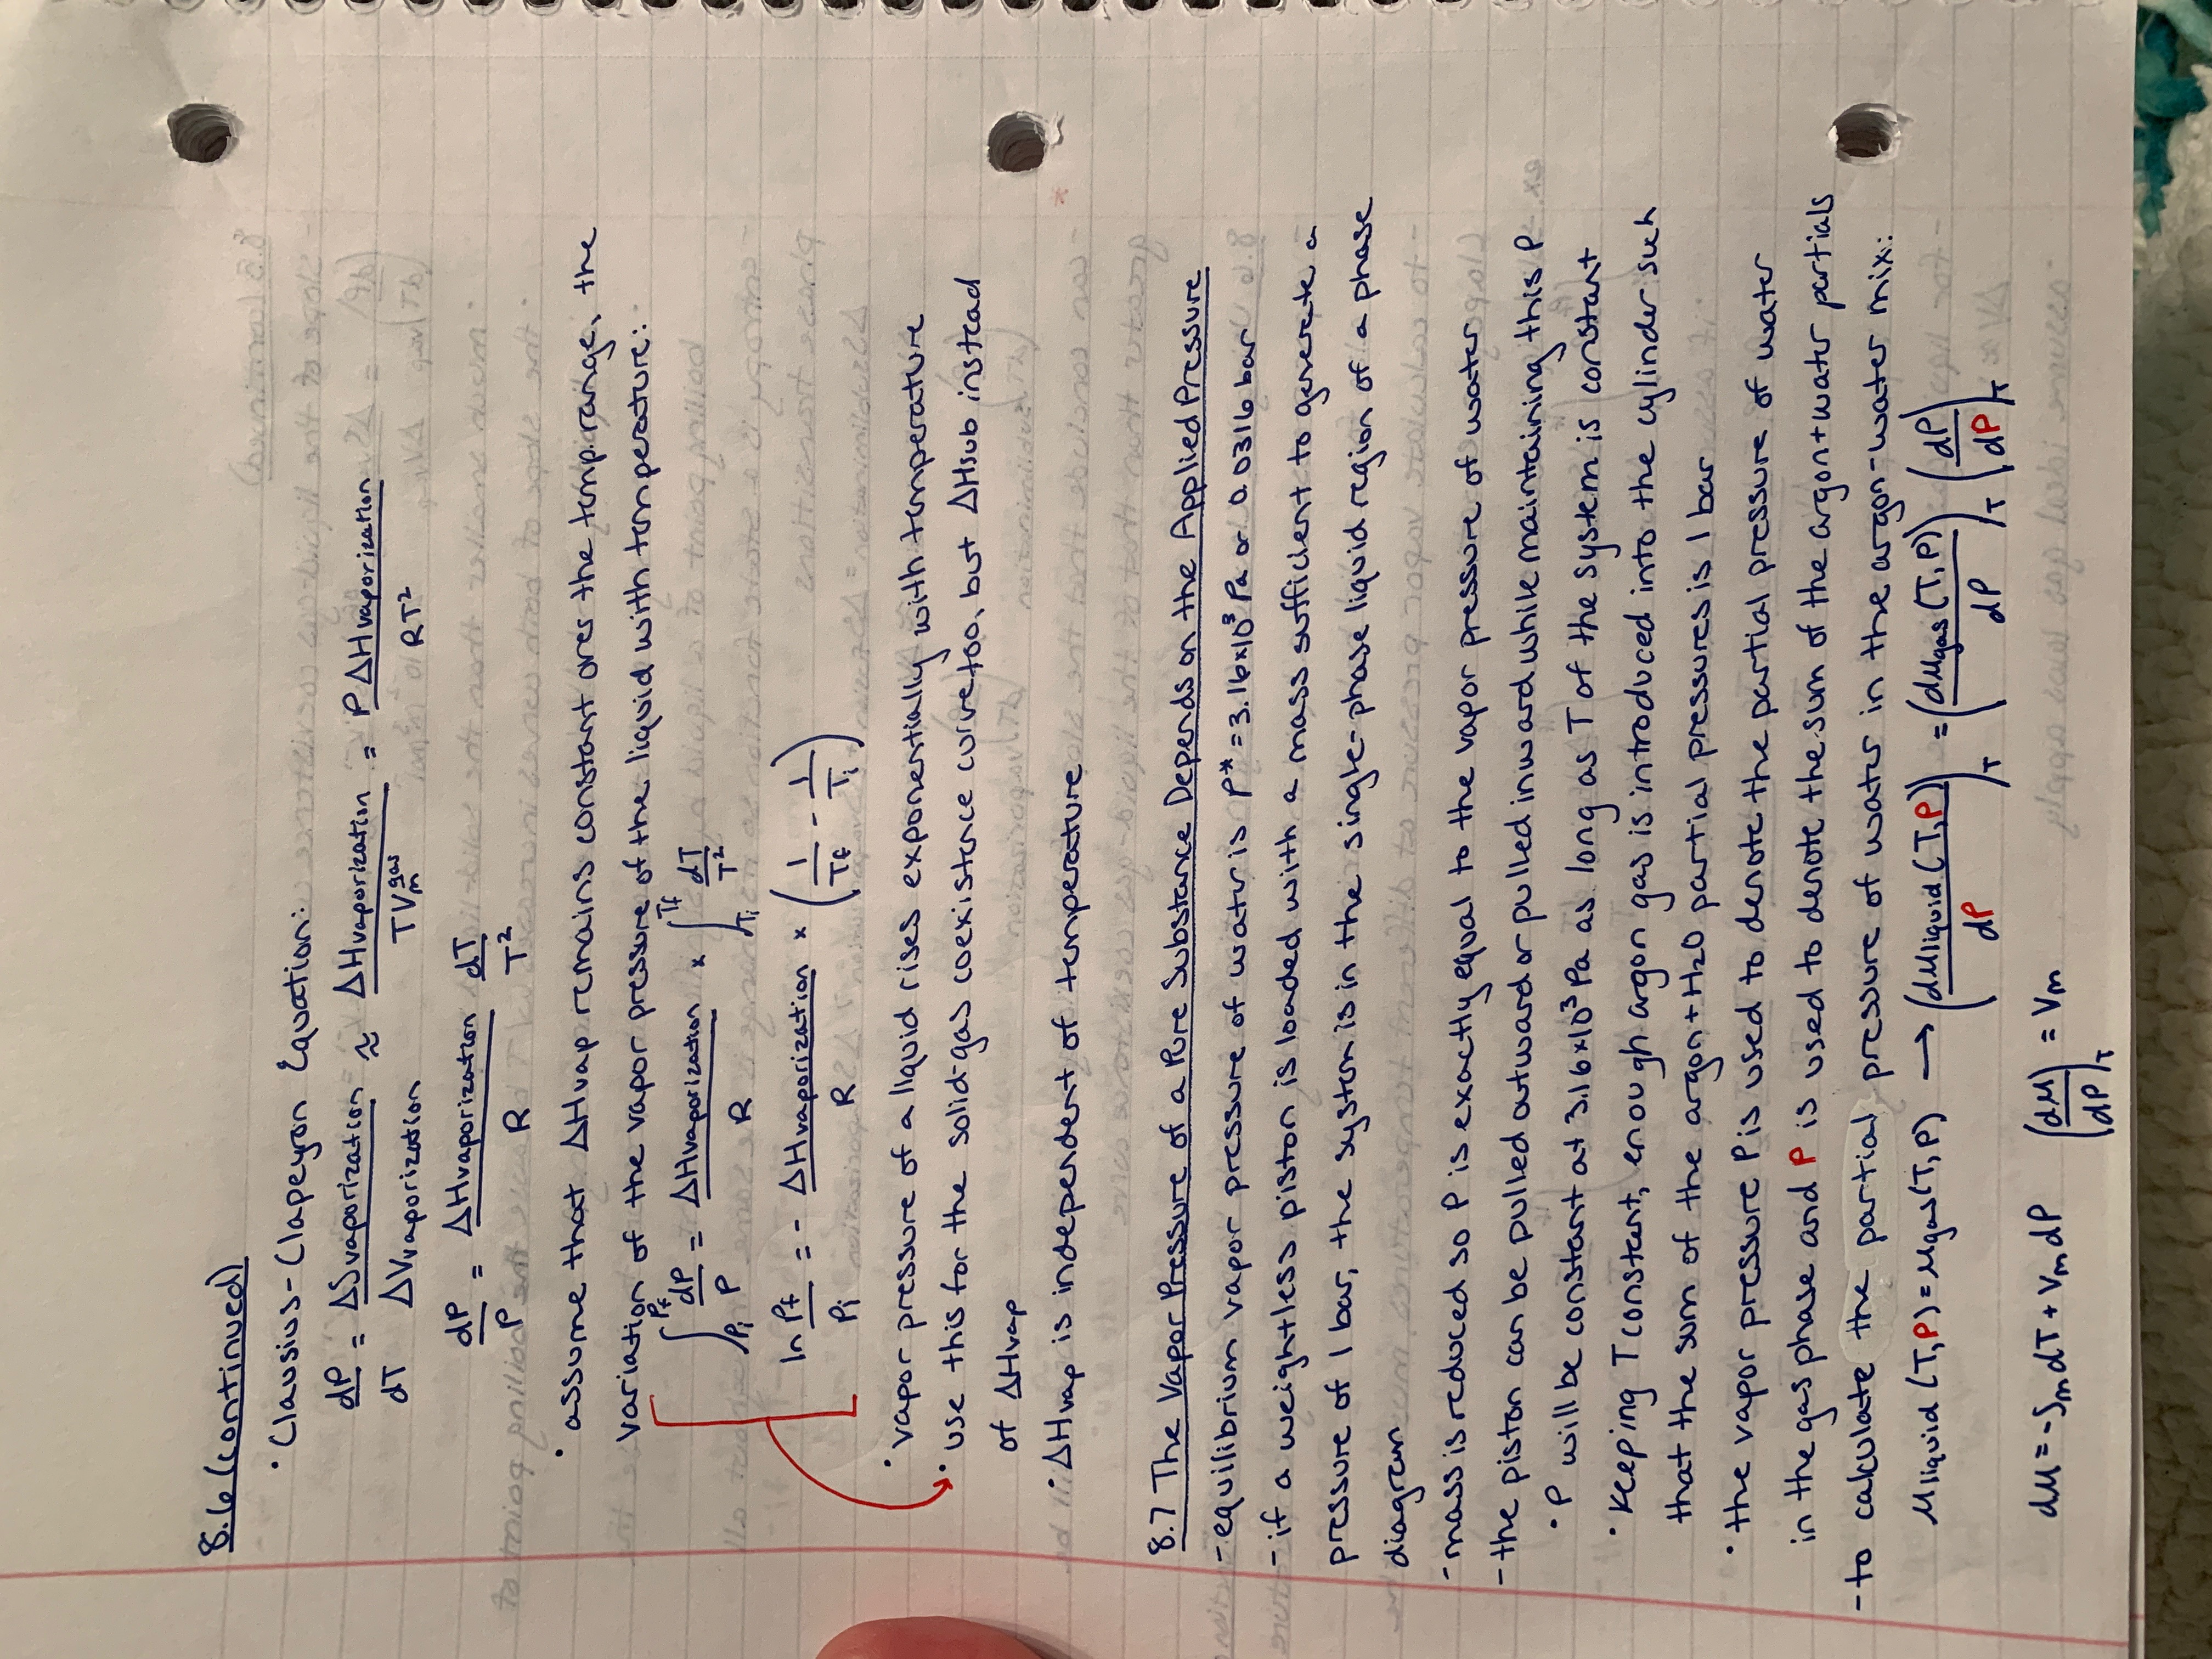 8.6 (continued)
· Clausius-Clapeyron Equation:
dP/dT = ΔSvaporization/ΔVvaporization ≈ ΔHvaporization/TVm^gas = PΔHvaporization/RT²
dP/P = ΔHvaporization/R dT/T²
· assume that ΔHvap remains constant over the temp. range, the
variation of the vapor pressure of the liquid with temperature:
∫_Pi^Pf dP/P = ΔHvaporization/R × ∫_Ti^Tf dT/T²
ln Pf/Pi = - ΔHvaporization/R × (1/Tf - 1/Ti)
· vapor pressure of a liquid rises exponentially with temperature
· use this for the solid-gas coexistence curve too, but ΔHsub instead
of ΔHvap
· ΔHvap is independent of temperature
8.7 The Vapor Pressure of a Pure Substance Depends on the Applied Pressure
- equilibrium vapor pressure of water is P* = 3.16×10³ Pa or 0.0316 bar
- if a weightless piston is loaded with a mass sufficient to generate a
pressure of 1 bar, the system is in the single-phase liquid region of a phase
diagram
- mass is reduced so P is exactly equal to the vapor pressure of water
- the piston can be pulled outward or pulled inward while maintaining this P
· P will be constant at 3.16×10³ Pa as long as T of the system is constant
· keeping T constant, enough argon gas is introduced into the cylinder such
that the sum of the argon + H₂O partial pressures is 1 bar
· the vapor pressure P is used to denote the partial pressure of water
in the gas phase and P is used to denote the sum of the argon + water partials
- to calculate the partial pressure of water in the argon-water mix:
μliquid (T,P) = μgas (T,P) → (dμliquid (T,P)/dP)_T = (dμgas (T,P)/dP)_T (dP/dP)_T
dμ = -SmdT + VmdP (dμ/dP)_T = Vm